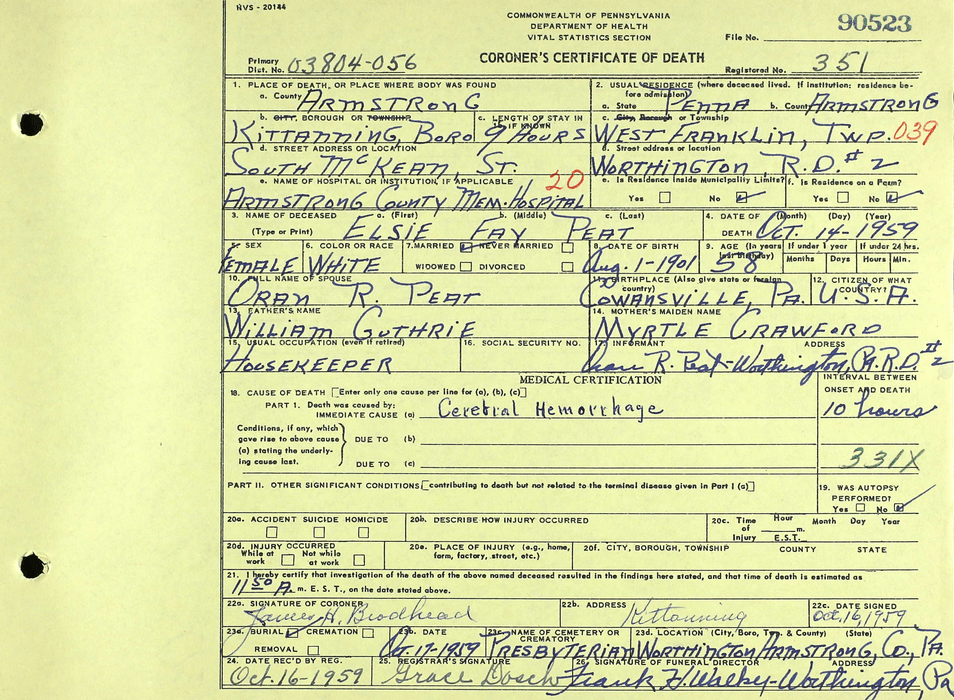 HVS - 20144
COMMONWEALTH OF PENNSYLVANIA
DEPARTMENT OF HEALTH
VITAL STATISTICS SECTION
File No. 90523
Primary Dist. No. 03804-056
CORONER'S CERTIFICATE OF DEATH
Registered No. 351
1. PLACE OF DEATH, OR PLACE WHERE BODY WAS FOUND
a. County ARMSTRONG
2. USUAL RESIDENCE (where deceased lived. If institution: residence before admission)
a. State PENNA b. County ARMSTRONG
b. CITY, BOROUGH OR TOWNSHIP KITTANNING, BORO
c. LENGTH OF STAY IN 1b, IF KNOWN 9 HOURS
c. City, Borough or Township WEST FRANKLIN, TWP. 039
d. STREET ADDRESS OR LOCATION SOUTH McKEAN, ST.
d. Street address or location WORTHINGTON R.D. #2
e. NAME OF HOSPITAL OR INSTITUTION, IF APPLICABLE 20
ARMSTRONG COUNTY MEM. HOSPITAL
e. Is Residence Inside Municipality Limits? Yes No
f. Is Residence on a Farm? Yes No
3. NAME OF DECEASED (Type or Print) a. (First) b. (Middle) c. (Last)
ELSIE FAY PEAT
4. DATE OF DEATH (Month) (Day) (Year) OCT. 14-1959
5. SEX FEMALE
6. COLOR OR RACE WHITE
7. MARRIED NEVER MARRIED WIDOWED DIVORCED
8. DATE OF BIRTH Aug. 1-1901
9. AGE (In years last birthday) 58 If under 1 year Months Days If under 24 hrs. Hours Min.
10. FULL NAME OF SPOUSE ORAN R. PEAT
11. BIRTHPLACE (Also give state or foreign country) COWANSVILLE, PA.
12. CITIZEN OF WHAT COUNTRY? U.S.A.
13. FATHER'S NAME WILLIAM GUTHRIE
14. MOTHER'S MAIDEN NAME MYRTLE CRAWFORD
15. USUAL OCCUPATION (even if retired) HOUSEKEEPER
16. SOCIAL SECURITY NO.
17. INFORMANT ADDRESS Oran R. Peat-Worthington, Pa. R.D. #2
MEDICAL CERTIFICATION
INTERVAL BETWEEN ONSET AND DEATH
18. CAUSE OF DEATH [Enter only one cause per line for (a), (b), (c)]
PART 1. Death was caused by:
IMMEDIATE CAUSE (a) Cerebral Hemorrhage 10 hours
Conditions, if any, which gave rise to above cause (a) stating the underlying cause last.
DUE TO (b)
DUE TO (c) 331X
PART II. OTHER SIGNIFICANT CONDITIONS [contributing to death but not related to the terminal disease given in Part I (a)]
19. WAS AUTOPSY PERFORMED? Yes No
20a. ACCIDENT SUICIDE HOMICIDE
20b. DESCRIBE HOW INJURY OCCURRED
20c. Time of Injury Hour m. E.S.T. Month Day Year
20d. INJURY OCCURRED While at work Not while at work
20e. PLACE OF INJURY (e.g., home, farm, factory, street, etc.)
20f. CITY, BOROUGH, TOWNSHIP COUNTY STATE
21. I hereby certify that investigation of the death of the above named deceased resulted in the findings here stated, and that time of death is estimated as
11 50 A. m. E. S. T., on the date stated above.
22a. SIGNATURE OF CORONER James H. Brodhead
22b. ADDRESS Kittanning
22c. DATE SIGNED Oct, 16, 1959
23a. BURIAL CREMATION REMOVAL
23b. DATE Oct. 17-1959
23c. NAME OF CEMETERY OR CREMATORY PRESBYTERIAN
23d. LOCATION (City, Boro, Twp. & County) (State) WORTHINGTON ARMSTRONG, CO., PA.
24. DATE REC'D BY REG. Oct. 16-1959
25. REGISTRAR'S SIGNATURE Grace Dosch
26. SIGNATURE OF FUNERAL DIRECTOR ADDRESS Frank H. -Worthington, Pa